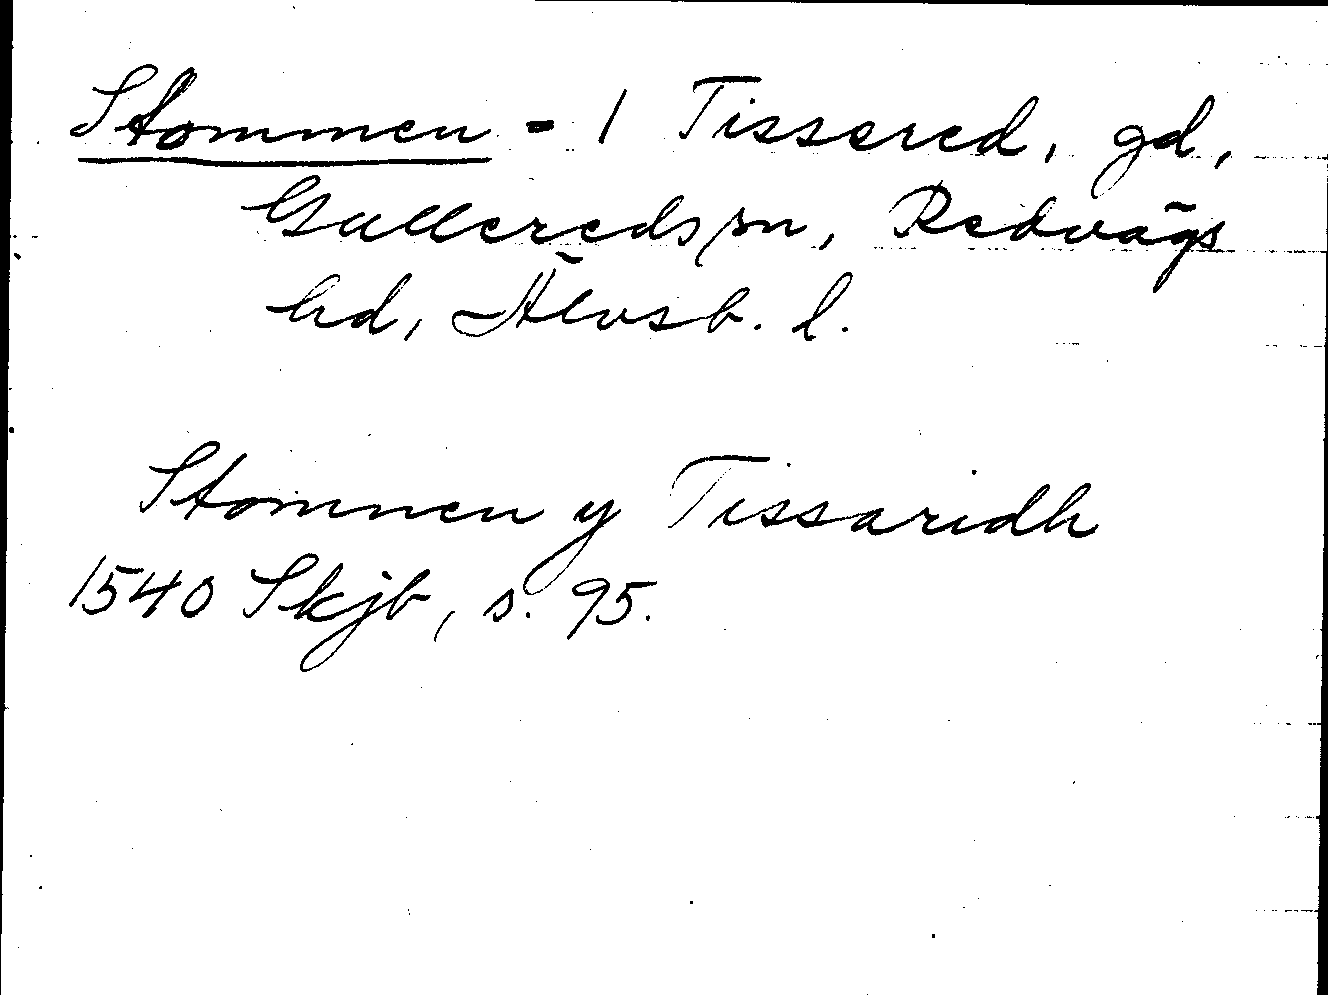 Stommen = 1 Tissered, gd,
Gulleredssn, Redvägs
hd, Älvsb. l.
Stomnen y Tissaridh
1540 Skjb, s. 95.